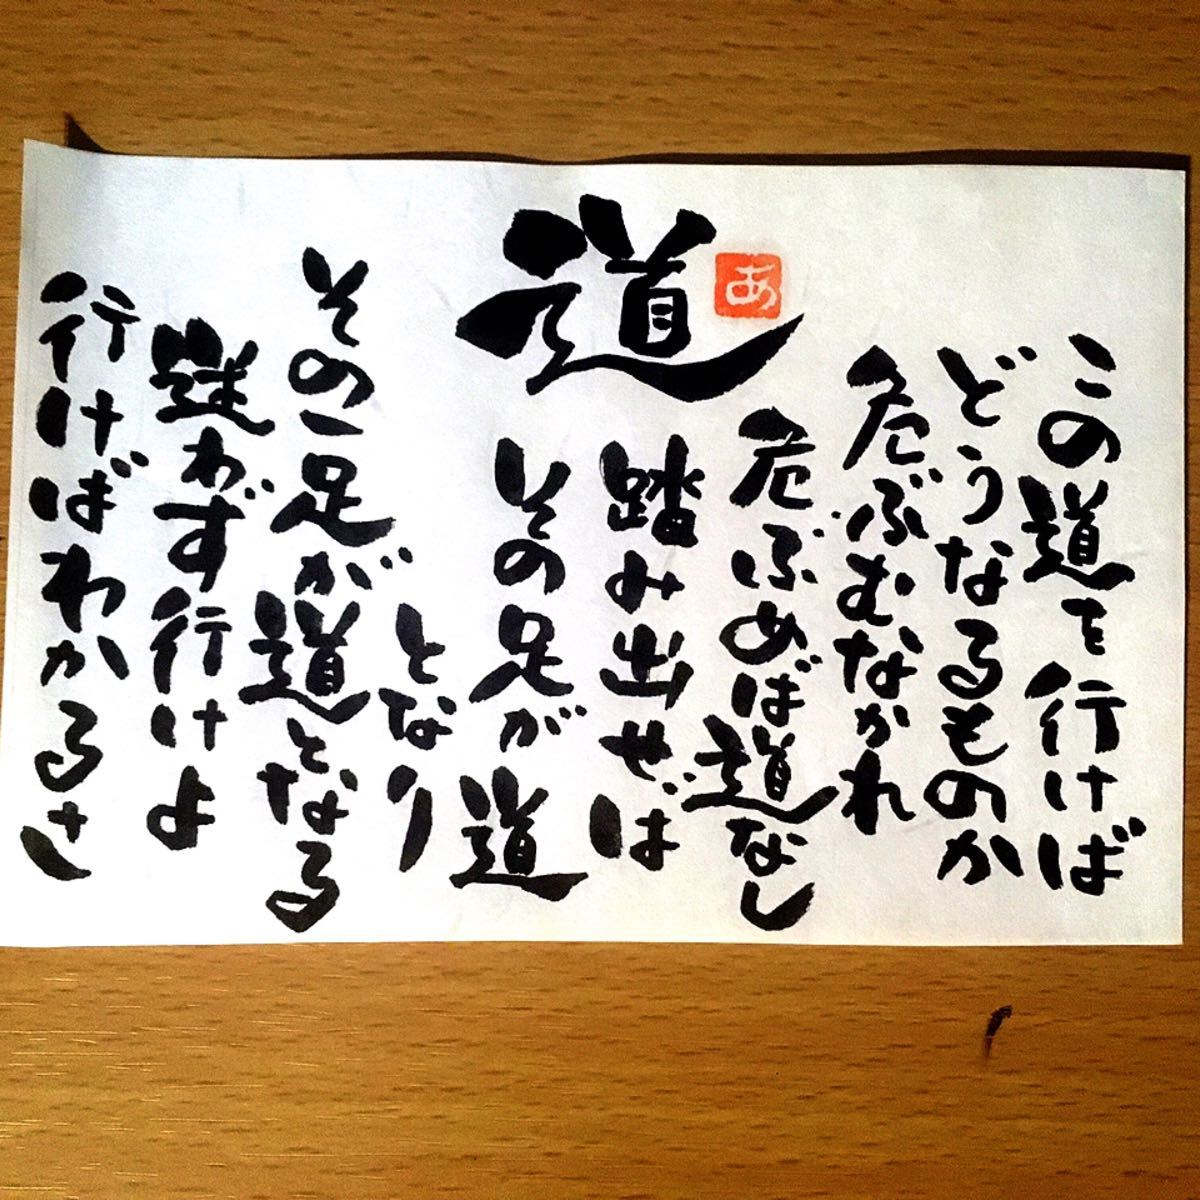 道
あ
この道を行けば
どうなるものか
危ぶむなかれ
危ぶめば道なし
踏み出せば
その足が道
となり
その一足が道となる
迷わず行けよ
行けばわかるさ